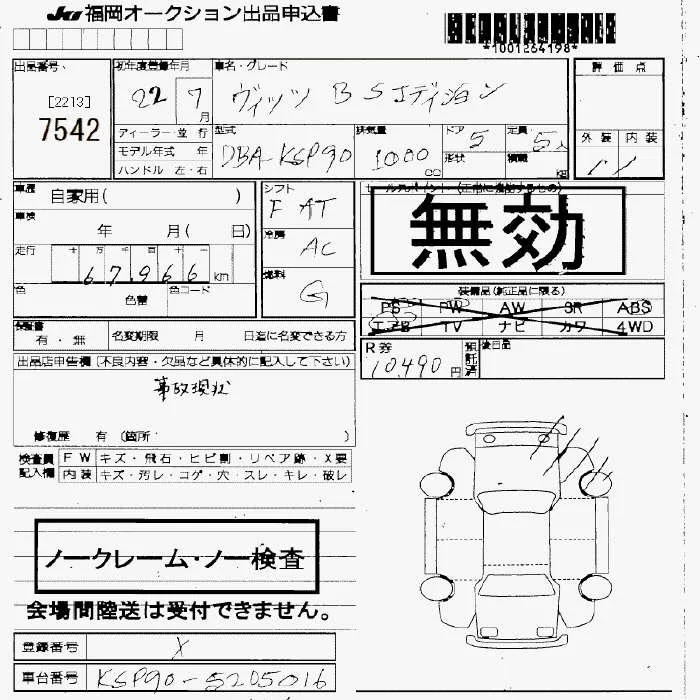 JU 福岡オークション出品申込書
*1001264198*
出品番号
[2213]
7542
初年度登録年月
22 7月
車名・グレード
ヴィッツ B Sエディション
評価点
ディーラー・並行
モデル年式 年
ハンドル 左・右
型式
DBA-KSP90
排気量
1000 cc
ドア
5
形状
定員
5人
積載
kg
外装 内装
車歴
自家用( )
車検
年 月( 日)
走行
十 万 千 百 十 一
67,966 km
色
色替
色コード
シフト
F AT
冷房
AC
燃料
G
セールスポイント(正常に機能するもの)
無効
装備品(純正品に限る)
PS PW AW SR ABS
エアB TV ナビ カワ 4WD
保証書
有・無
名変期限 月 日迄に名変できる方
R券
10,490円
預託済
後日品
出品店申告欄(不良内容・欠品など具体的に記入して下さい)
事故現状
修復歴 有 (箇所 )
検査員記入欄
FW キズ・飛石・ヒビ割・リペア跡・X要
内装 キズ・汚レ・コゲ・穴・スレ・キレ・破レ
ノークレーム・ノー検査
会場間陸送は受付できません。
登録番号
X
車台番号
KSP90-5205016